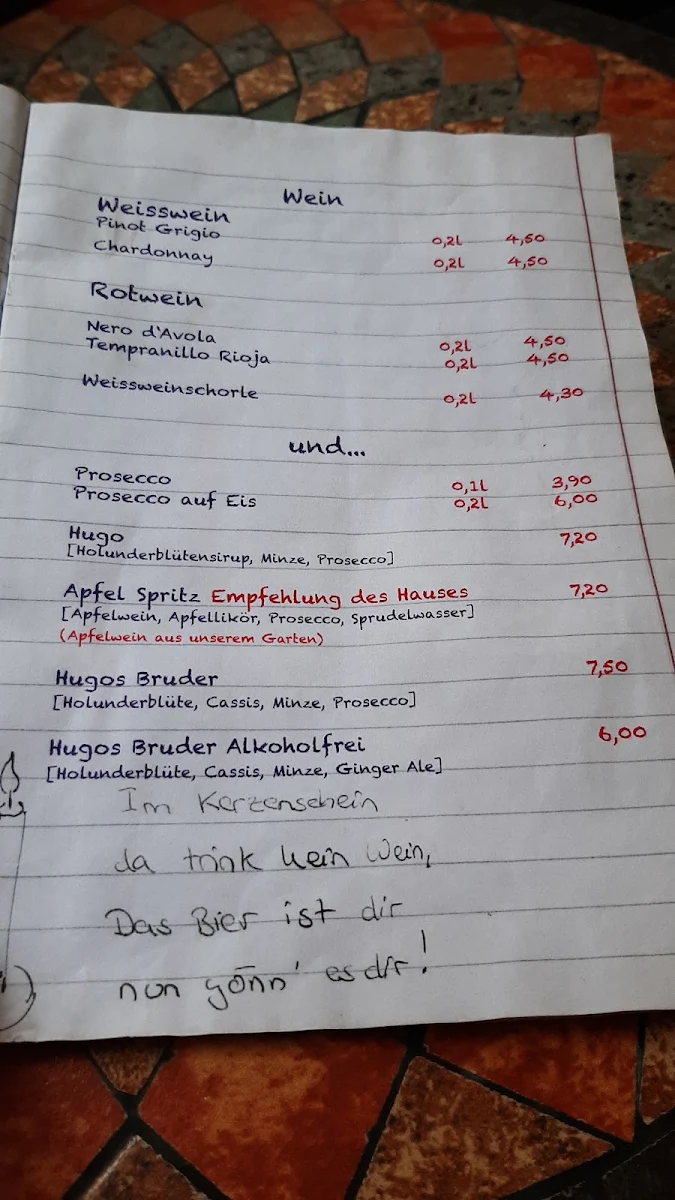 Wein
Weisswein
Pinot Grigio 0,2l 4,50
Chardonnay 0,2l 4,50
Rotwein
Nero d'Avola 0,2l 4,50
Tempranillo Rioja 0,2l 4,50
Weissweinschorle 0,2l 4,30
und...
Prosecco 0,1l 3,90
Prosecco auf Eis 0,2l 6,00
Hugo 7,20
[Holunderblütensirup, Minze, Prosecco]
Apfel Spritz Empfehlung des Hauses 7,20
[Apfelwein, Apfellikör, Prosecco, Sprudelwasser]
(Apfelwein aus unserem Garten)
Hugos Bruder 7,50
[Holunderblüte, Cassis, Minze, Prosecco]
Hugos Bruder Alkoholfrei 6,00
[Holunderblüte, Cassis, Minze, Ginger Ale]
Im Kerzenschein
da trink kein Wein,
Das Bier ist dir
nun gönn' es dir!